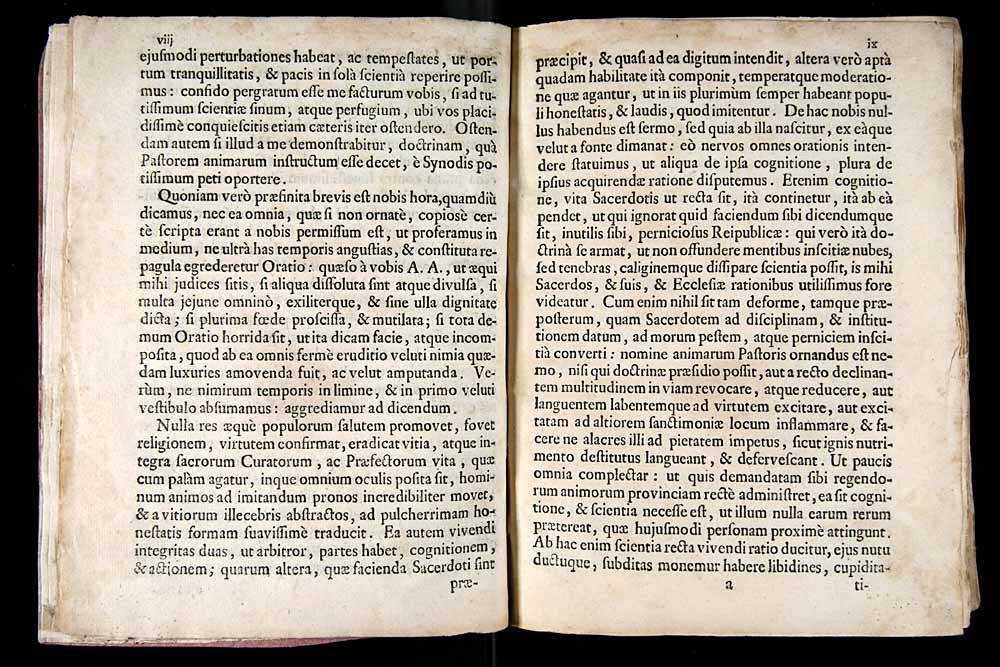 viij
ejuſmodi perturbationes habeat, ac tempeſtates, ut por-
tum tranquillitatis, & pacis in ſolà ſcientià reperire poſſi-
mus: confido pergratum eſſe me facturum vobis, ſi ad tu-
tiſſimum ſcientiæ ſinum, atque perfugium, ubi vos placi-
diſſimè conquieſcitis etiam cæteris iter oſtendero. Oſten-
dam autem ſi illud a me demonſtrabitur, doctrinam, quà
Paſtorem animarum inſtructum eſſe decet, è Synodis po-
tiſſimum peti oportere.
Quoniam verò præfinita brevis eſt nobis hora, quamdiù
dicamus, nec ea omnia, quæ ſi non ornatè, copiosè cer-
tè ſcripta erant a nobis permiſſum eſt, ut proferamus in
medium, ne ultrà has temporis anguſtias, & conſtituta re-
pagula egrederetur Oratio: quæſo à vobis A. A., ut æqui
mihi judices ſitis, ſi aliqua diſſoluta ſint atque divulſa, ſi
multa jejune omninò, exiliterque, & ſine ulla dignitate
dicta; ſi plurima fœde proſciſſa, & mutilata; ſi tota de-
mum Oratio horrida ſit, ut ita dicam facie, atque incom-
poſita, quod ab ea omnis fermè eruditio veluti nimia quæ-
dam luxuries amovenda fuit, ac velut amputanda. Ve-
rùm, ne nimirum temporis in limine, & in primo veluti
veſtibulo abſumamus: aggrediamur ad dicendum.
Nulla res æquè populorum ſalutem promovet, fovet
religionem, virtutem confirmat, eradicat vitia, atque in-
tegra ſacrorum Curatorum, ac Præfectorum vita, quæ
cum palàm agatur, inque omnium oculis poſita ſit, homi-
num animos ad imitandum pronos incredibiliter movet,
& a vitiorum illecebris abſtractos, ad pulcherrimam ho-
neſtatis formam ſuaviſſimè traducit. Ea autem vivendi
integritas duas, ut arbitror, partes habet, cognitionem,
& actionem; quarum altera, quæ facienda Sacerdoti ſint
præ-
ix
præcipit, & quaſi ad ea digitum intendit, altera verò aptà
quadam habilitate ità componit, temperatque moderatio-
ne quæ agantur, ut in iis plurimùm ſemper habeant popu-
li honeſtatis, & laudis, quod imitentur. De hac nobis nul-
lus habendus eſt ſermo, ſed quia ab illa naſcitur, ex eàque
velut a fonte dimanat: eò nervos omnes orationis inten-
dere ſtatuimus, ut aliqua de ipſa cognitione, plura de
ipſius acquirendæ ratione diſputemus. Etenim cognitio-
ne, vita Sacerdotis ut recta ſit, ità continetur, ità ab eà
pendet, ut qui ignorat quid faciendum ſibi dicendumque
ſit, inutilis ſibi, pernicioſus Reipublicæ: qui verò ità do-
ctrinà ſe armat, ut non offundere mentibus inſcitiæ nubes,
ſed tenebras, caliginemque diſſipare ſcientia poſſit, is mihi
Sacerdos, & ſuis, & Eccleſiæ rationibus utiliſſimus fore
videatur. Cum enim nihil ſit tam deforme, tamque præ-
poſterum, quam Sacerdotem ad diſciplinam, & inſtitu-
tionem datum, ad morum peſtem, atque perniciem inſci-
tià converti: nomine animarum Paſtoris ornandus eſt ne-
mo, niſi qui doctrinæ præſidio poſſit, aut a recto declinan-
tem multitudinem in viam revocare, atque reducere, aut
languentem labentemque ad virtutem excitare, aut exci-
tatam ad altiorem ſanctimoniæ locum inflammare, & fa-
cere ne alacres illi ad pietatem impetus, ſicut ignis nutri-
mento deſtitutus langueant, & deferveſcant. Ut paucis
omnia complectar: ut quis demandatam ſibi regendo-
rum animorum provinciam rectè adminiſtret, ea ſit cogni-
tione, & ſcientia neceſſe eſt, ut illum nulla earum rerum
prætereat, quæ hujuſmodi perſonam proximè attingunt.
Ab hac enim ſcientia recta vivendi ratio ducitur, ejus nutu
ductuque, ſubditas monemur habere libidines, cupidita-
a
ti-